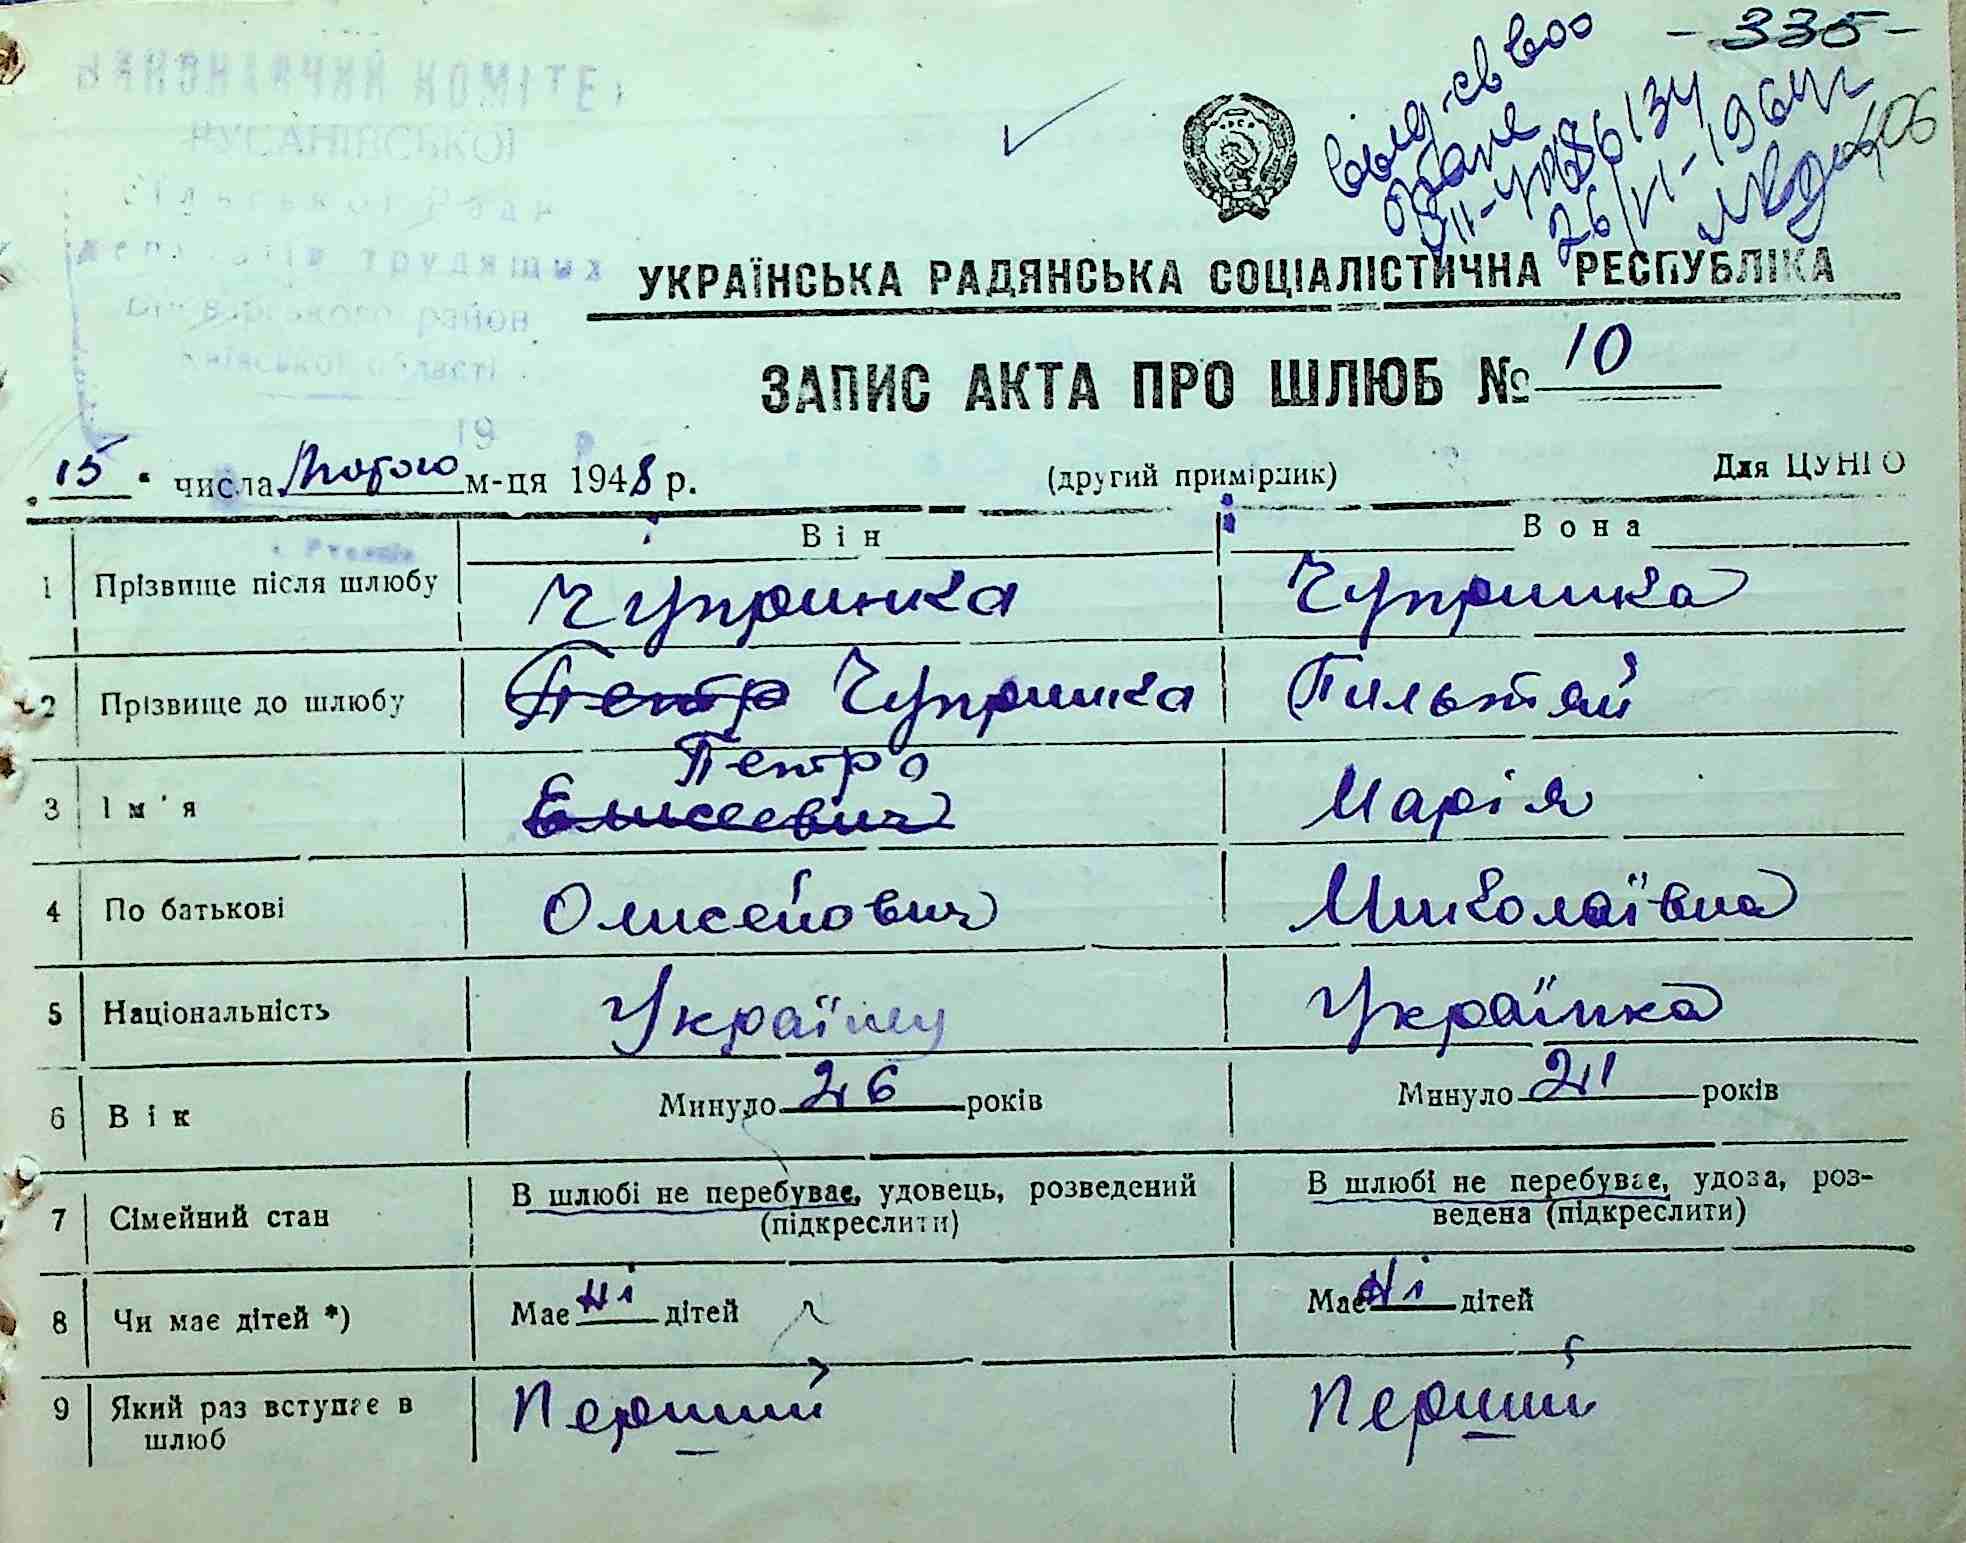 -335-
406
ВИКОНАВЧИЙ КОМІТЕТ
РУСАНІВСЬКОЇ
сільської Ради
депутатів трудящих
Броварського район
Київської області
19 р
26/VI-1964р
УКРАЇНСЬКА РАДЯНСЬКА СОЦІАЛІСТИЧНА РЕСПУБЛІКА
ЗАПИС АКТА ПРО ШЛЮБ № 10
"15" числа Лютого м-ця 1948 р. (другий примірник) Для ЦУНГО
Він Вона
1 Прізвище після шлюбу Чупринка Чупринка
2 Прізвище до шлюбу Петро Чупринка Пильтяй
Петро
3 Ім'я Елисеевич Марія
4 По батькові Олисейович Миколаївна
5 Національність Українец Українка
6 Вік Минуло 26 років Минуло 21 років
7 Сімейний стан В шлюбі не перебуває, удовець, розведений В шлюбі не перебуває, удова, роз-
(підкреслити) ведена (підкреслити)
8 Чи має дітей *) Має Ні дітей Має Ні дітей
9 Який раз вступає в Перший Перший
шлюб